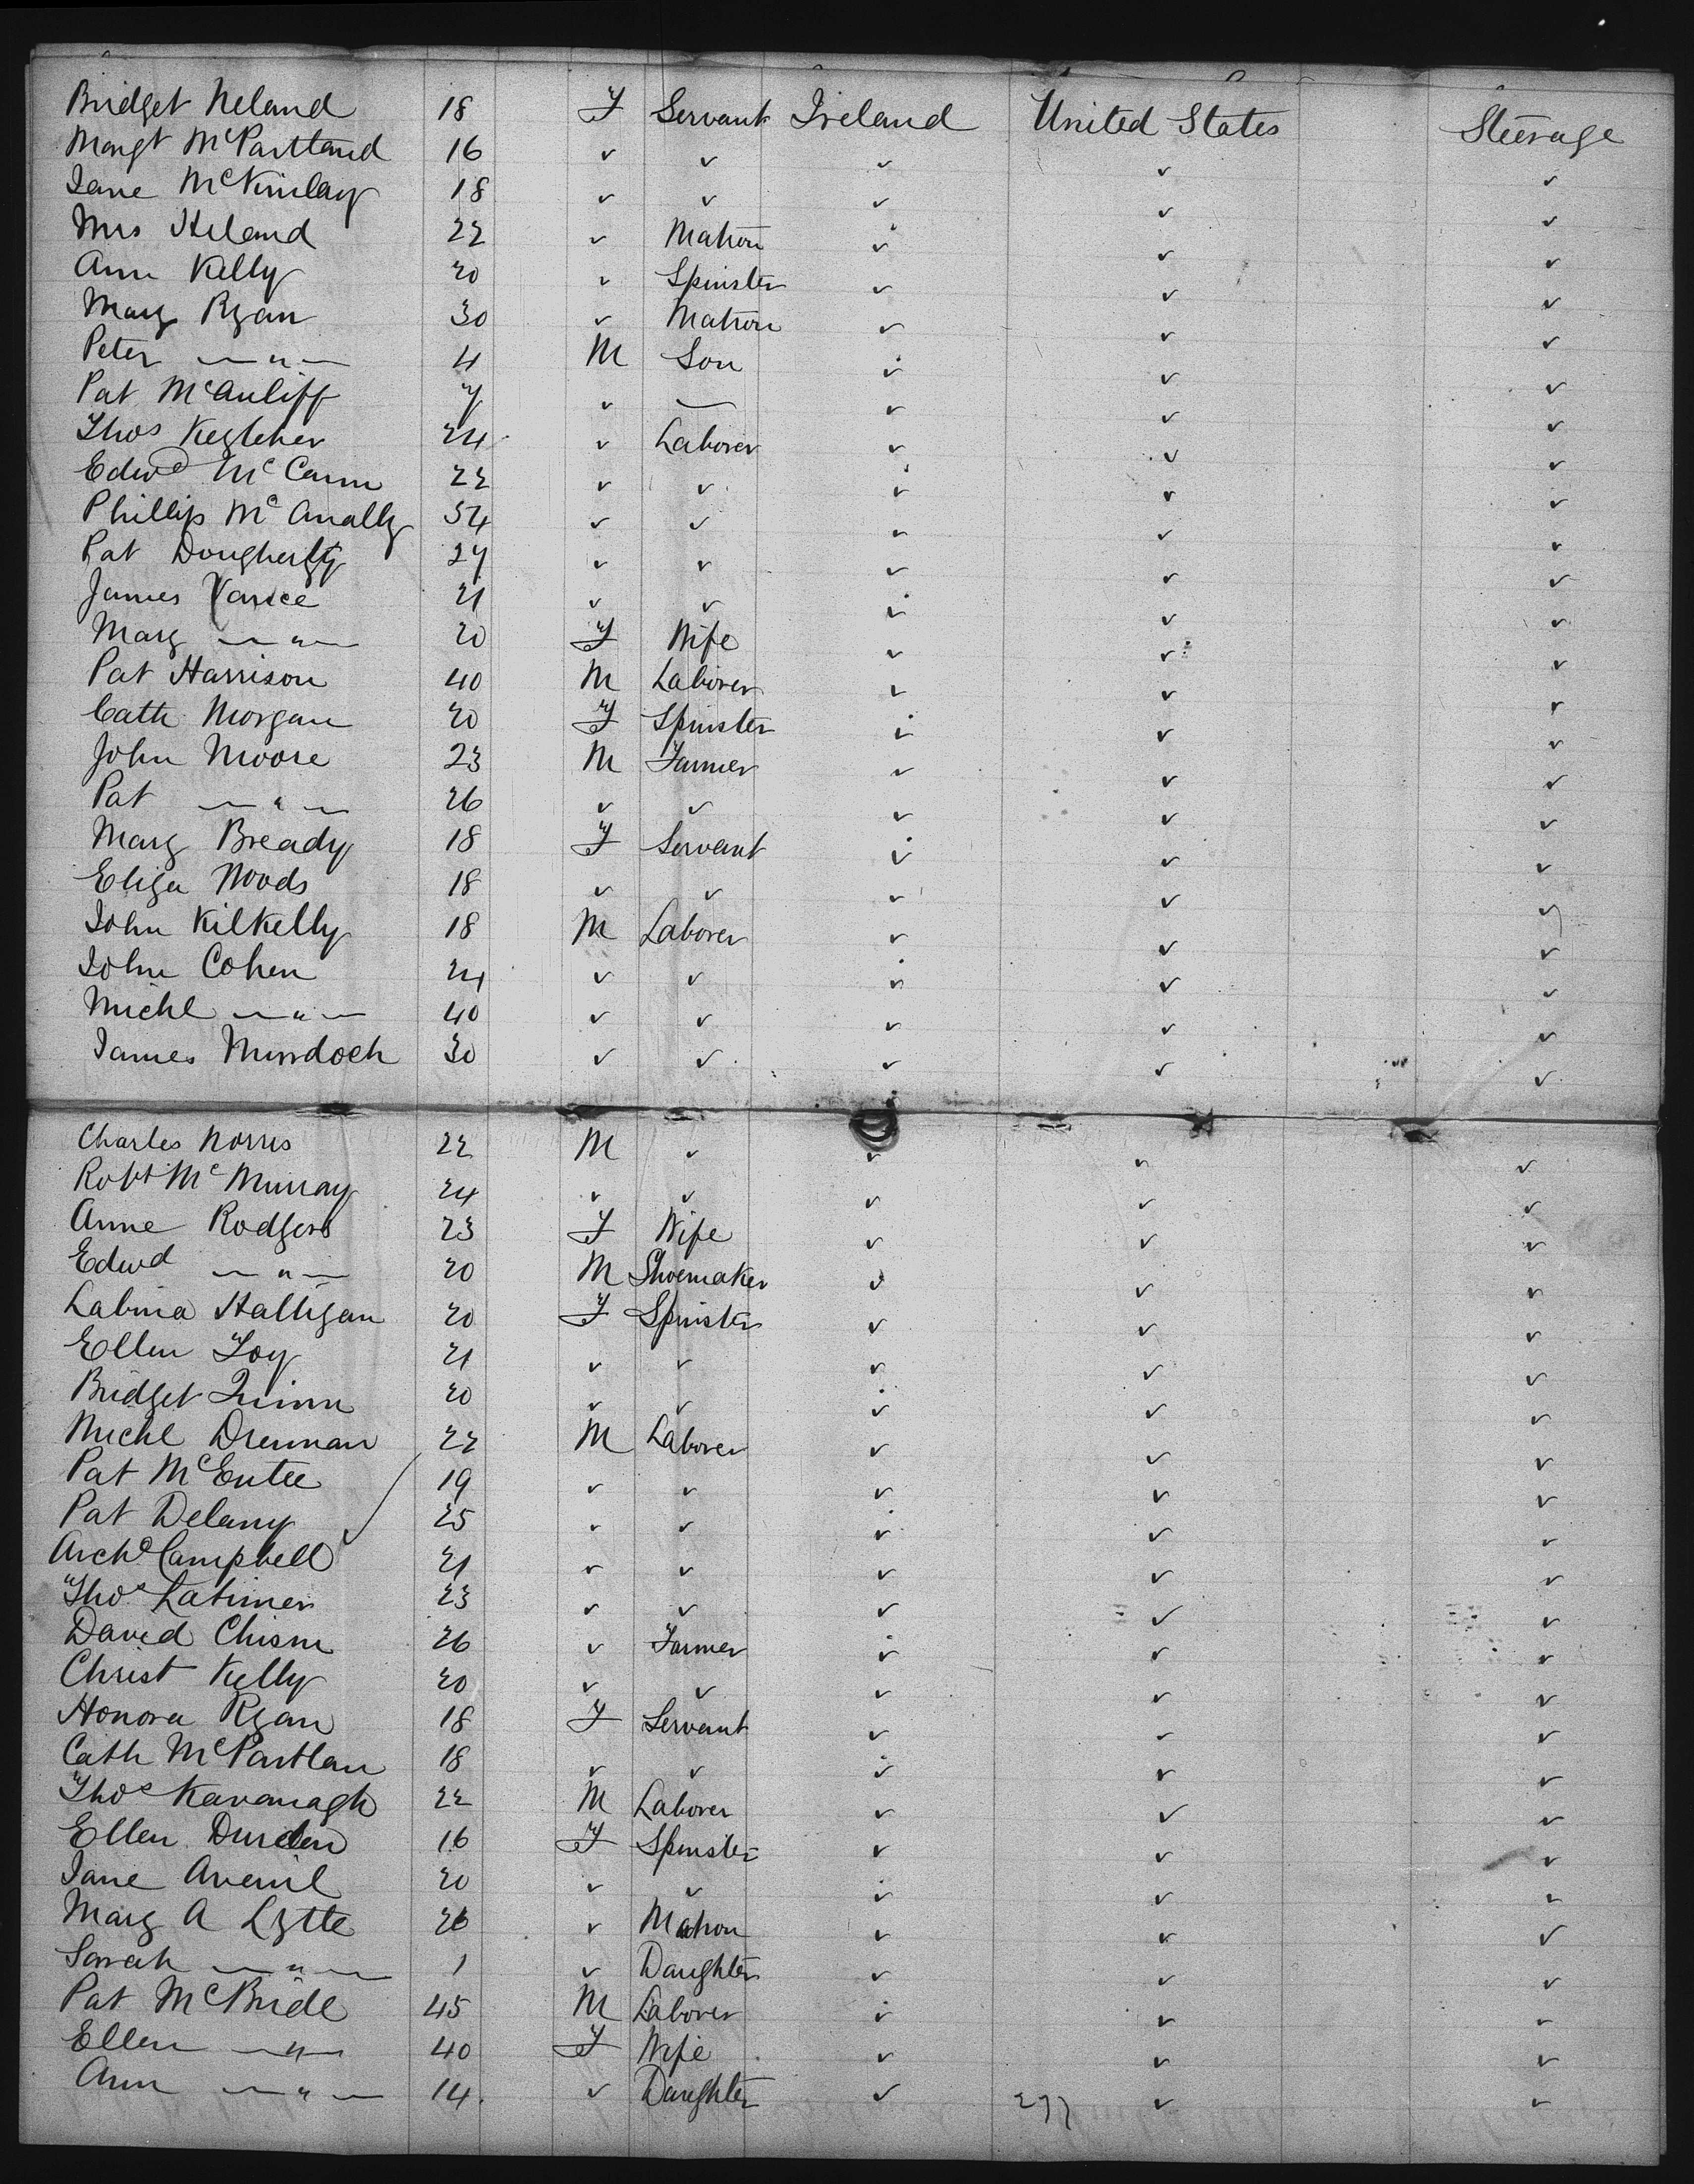 Bridget Neland 18 F Servant Ireland United States Steerage
Margt McPartland 16 ✓ ✓ ✓ ✓ ✓
Jane McKinlay 18 ✓ ✓ ✓ ✓ ✓
Mrs Heland 22 ✓ Matron ✓ ✓ ✓
Ann Kelly 20 ✓ Spinster ✓ ✓ ✓
Mary Ryan 30 ✓ Matron ✓ ✓ ✓
Peter — " — 4 M Son ✓ ✓ ✓
Pat McAuliff 7 ✓ — ✓ ✓ ✓
Thos Kegleher 24 ✓ Laborer ✓ ✓ ✓
Edwd McCann 22 ✓ ✓ ✓ ✓ ✓
Phillip McAnally 54 ✓ ✓ ✓ ✓ ✓
Pat Dougherty 27 ✓ ✓ ✓ ✓ ✓
James Vance 21 ✓ ✓ ✓ ✓ ✓
Mary — " — 20 F Wife ✓ ✓ ✓
Pat Harrison 40 M Laborer ✓ ✓ ✓
Cath Morgan 20 F Spinster ✓ ✓ ✓
John Moore 23 M Farmer ✓ ✓ ✓
Pat — " — 26 ✓ ✓ ✓ ✓ ✓
Mary Bready 18 F Servant ✓ ✓ ✓
Eliza Woods 18 ✓ ✓ ✓ ✓ ✓
John Kilkelly 18 M Laborer ✓ ✓ ✓
John Cohen 24 ✓ ✓ ✓ ✓ ✓
Michl — " — 40 ✓ ✓ ✓ ✓ ✓
James Murdoch 30 ✓ ✓ ✓ ✓ ✓
Charles Norris 22 M ✓ ✓ ✓ ✓
Robt McMurray 24 ✓ ✓ ✓ ✓ ✓
Anne Rodgers 23 F Wife ✓ ✓ ✓
Edwd — " — 20 M Shoemaker ✓ ✓ ✓
Labina Halligan 20 F Spinster ✓ ✓ ✓
Ellen Foy 21 ✓ ✓ ✓ ✓ ✓
Bridget Quinn 20 ✓ ✓ ✓ ✓ ✓
Michl Drennan 22 M Laborer ✓ ✓ ✓
Pat McEntee 19 ✓ ✓ ✓ ✓ ✓
Pat Delany 25 ✓ ✓ ✓ ✓ ✓
Archd Campbell 21 ✓ ✓ ✓ ✓ ✓
Thos Latimer 23 ✓ ✓ ✓ ✓ ✓
David Chism 26 ✓ Farmer ✓ ✓ ✓
Christ Kelly 20 ✓ ✓ ✓ ✓ ✓
Honora Ryan 18 F Servant ✓ ✓ ✓
Cath McPartlan 18 ✓ ✓ ✓ ✓ ✓
Thos Kavanagh 22 M Laborer ✓ ✓ ✓
Ellen Durden 16 F Spinster ✓ ✓ ✓
Jane Avenil 20 ✓ ✓ ✓ ✓ ✓
Mary A Lytte 26 ✓ Matron ✓ ✓ ✓
Sarah — " — 1 ✓ Daughter ✓ ✓ ✓
Pat McBride 45 M Laborer ✓ ✓ ✓
Ellen — " — 40 F Wife ✓ ✓ ✓
Ann — " — 14. ✓ Daughter ✓ 277 ✓ ✓